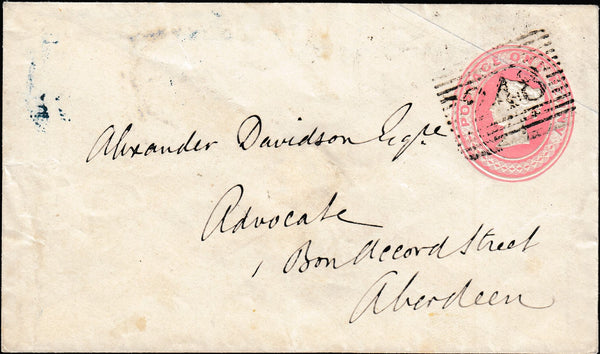 POSTAGE ONE
Alexander Davidson Esqre
Advocate
1 Bon Accord Street
Aberdeen